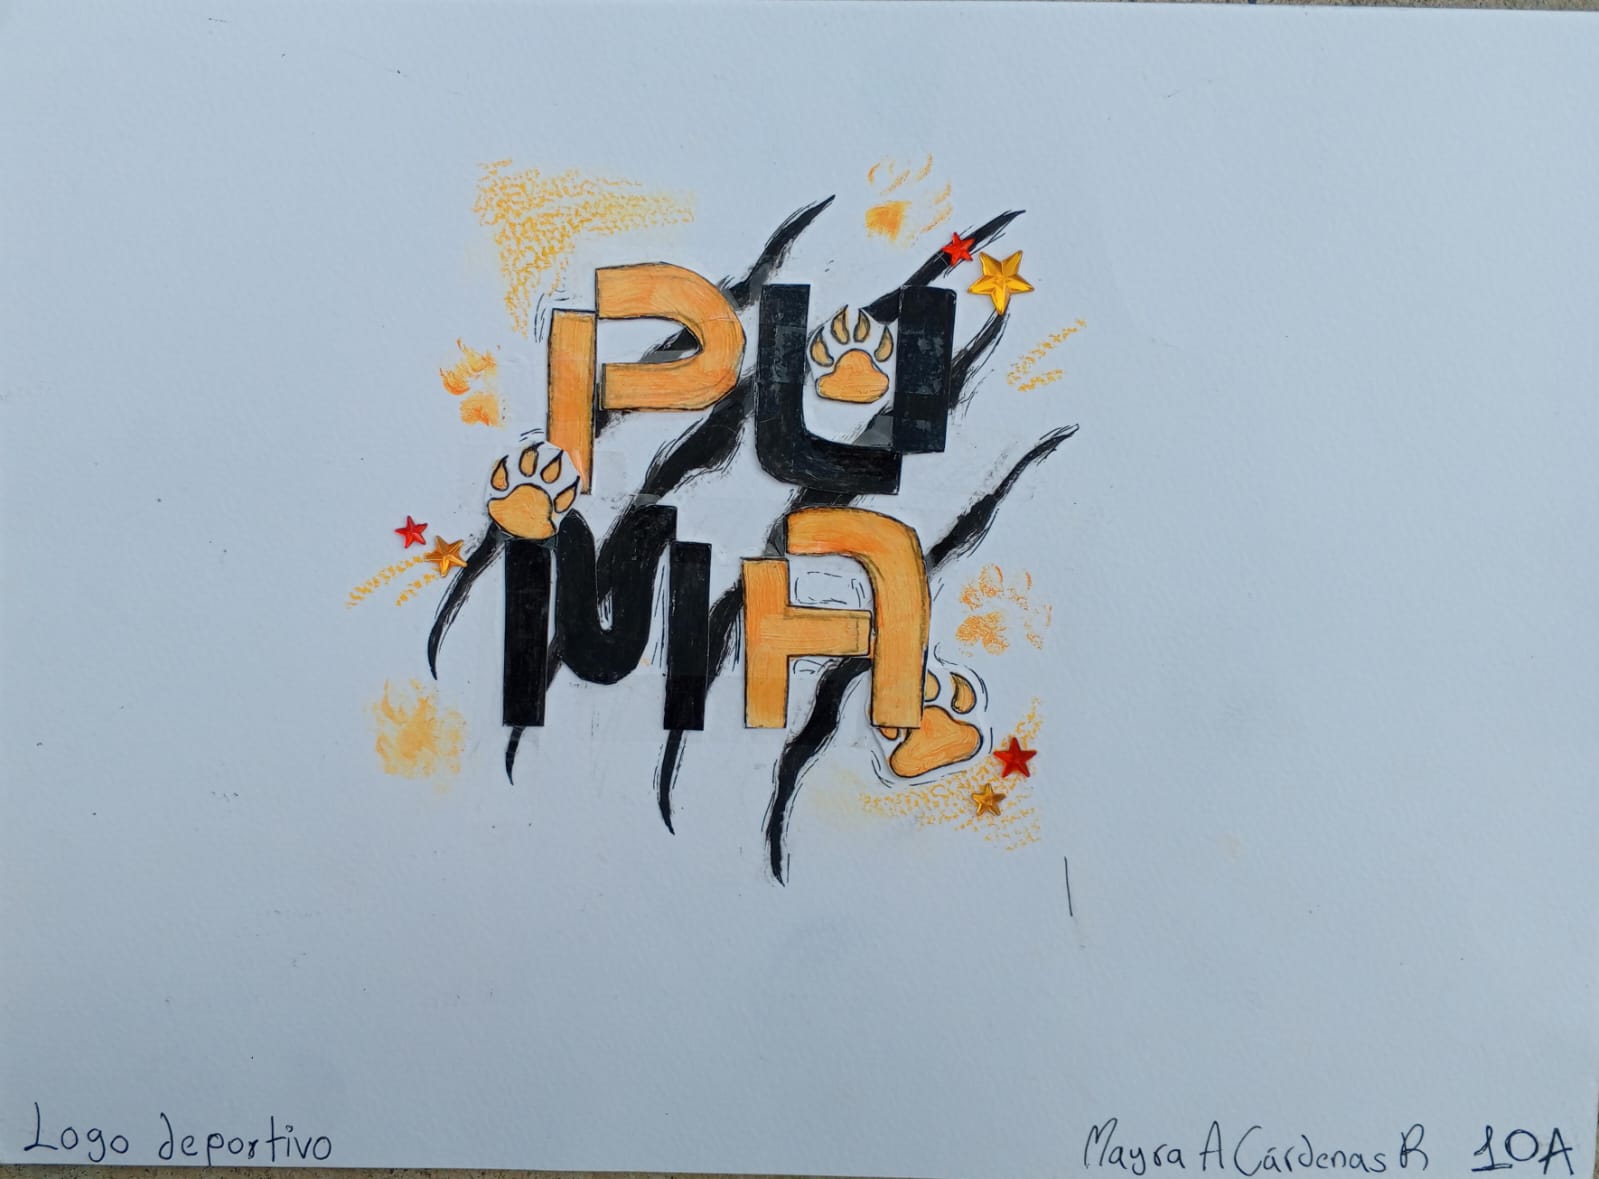 PU
MA
Logo deportivo
Mayra A Cárdenas R 10A